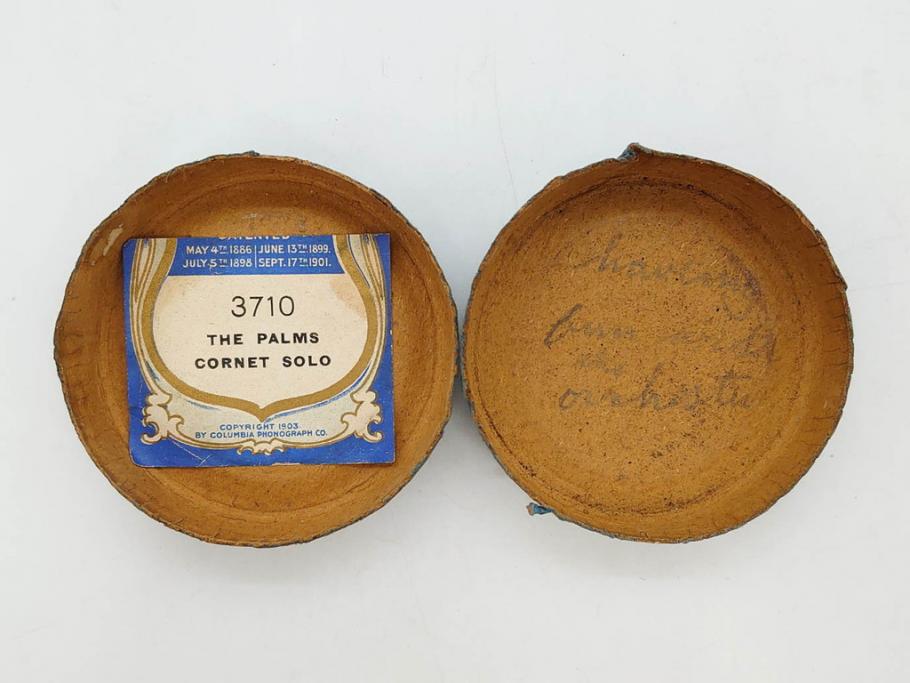 PATENTED
MAY 4TH 1886 | JUNE 13TH 1899.
JULY 5TH 1898 | SEPT. 17TH 1901.
3710
THE PALMS
CORNET SOLO
COPYRIGHT 1903
BY COLUMBIA PHONOGRAPH CO.
having
fun